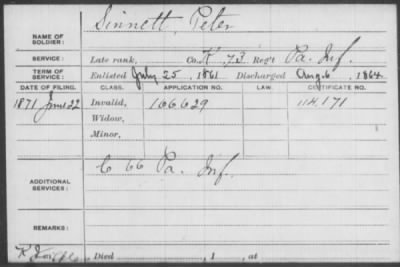 Sinnett, Peter
NAME OF SOLDIER:
SERVICE: Late rank, Co. K 73 Reg't Pa. Inf.
TERM OF SERVICE: Enlisted July 25, 1861 Discharged Aug 6, 1864
DATE OF FILING. CLASS. APPLICATION NO. LAW. CERTIFICATE NO.
1871 June 22 Invalid, 166629 114171
Widow,
Minor,
ADDITIONAL SERVICES: C 66 Pa. Inf.
REMARKS:
Died , 1 , at